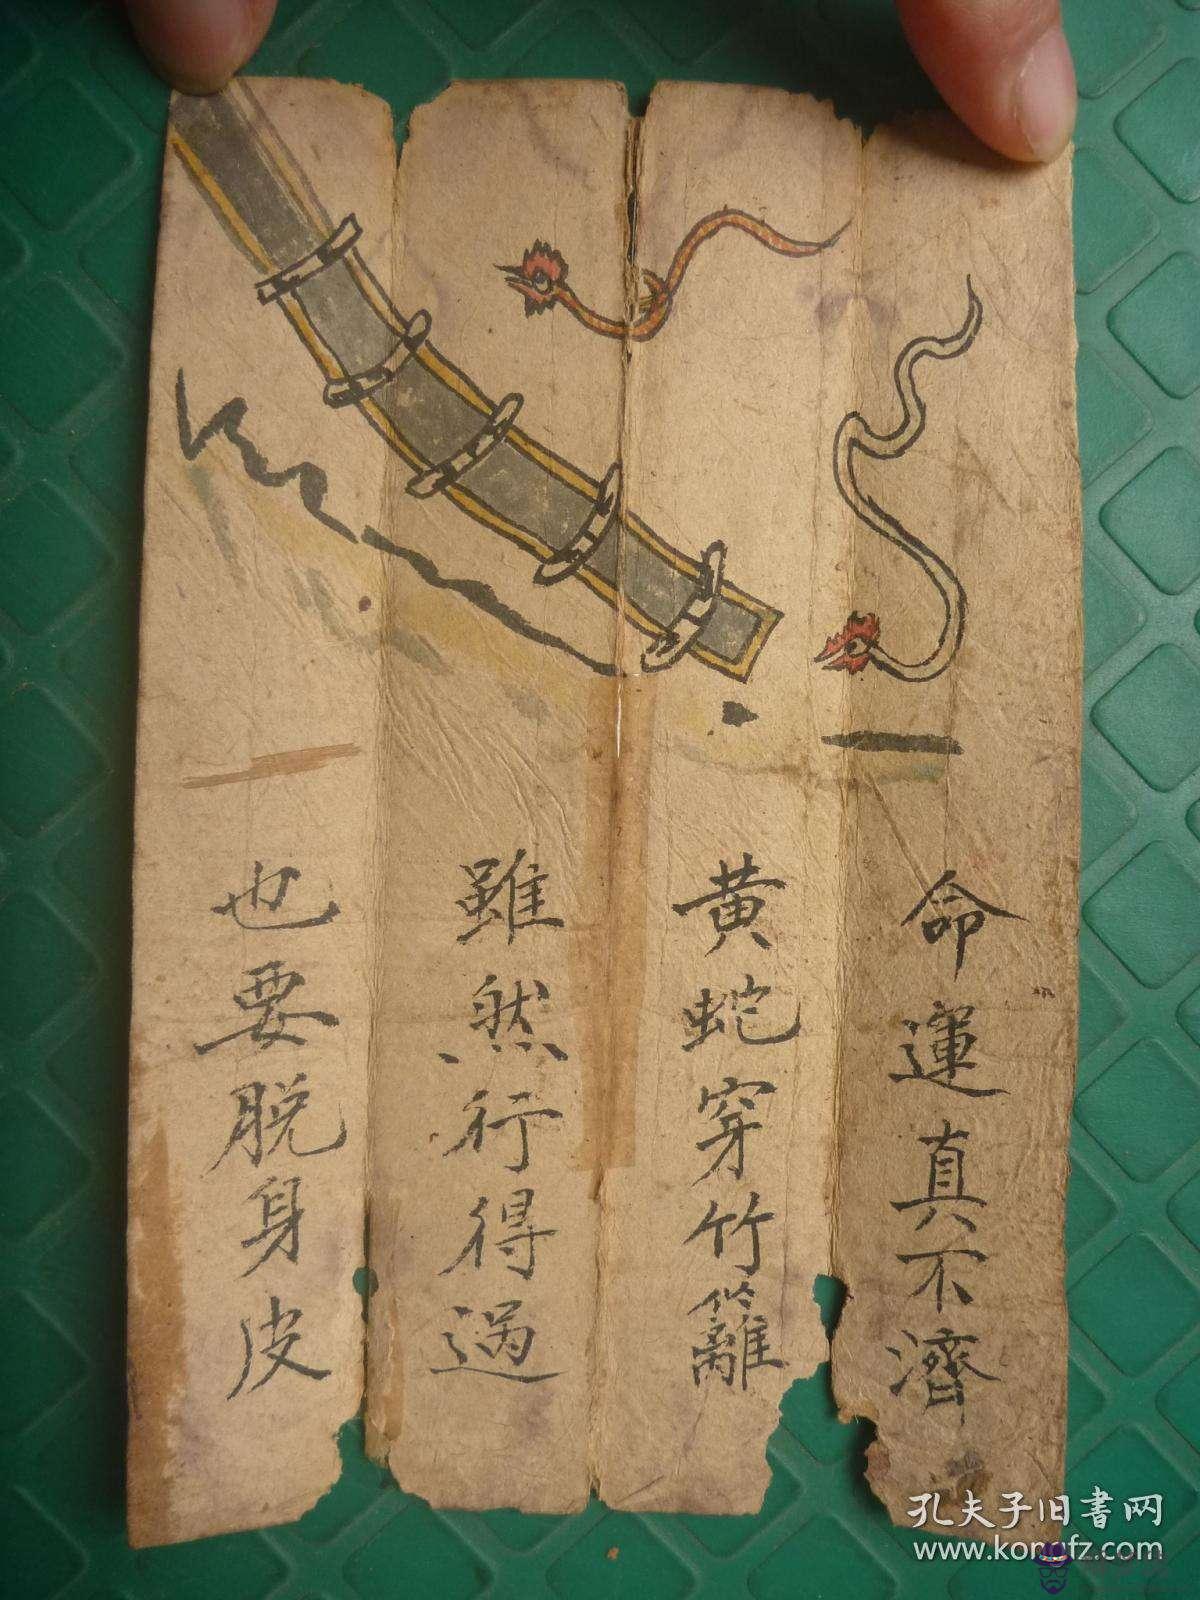 命運真不濟
黄蛇穿竹籬
雖然行得過
也要脱身皮
孔夫子旧书网
www.kongfz.com